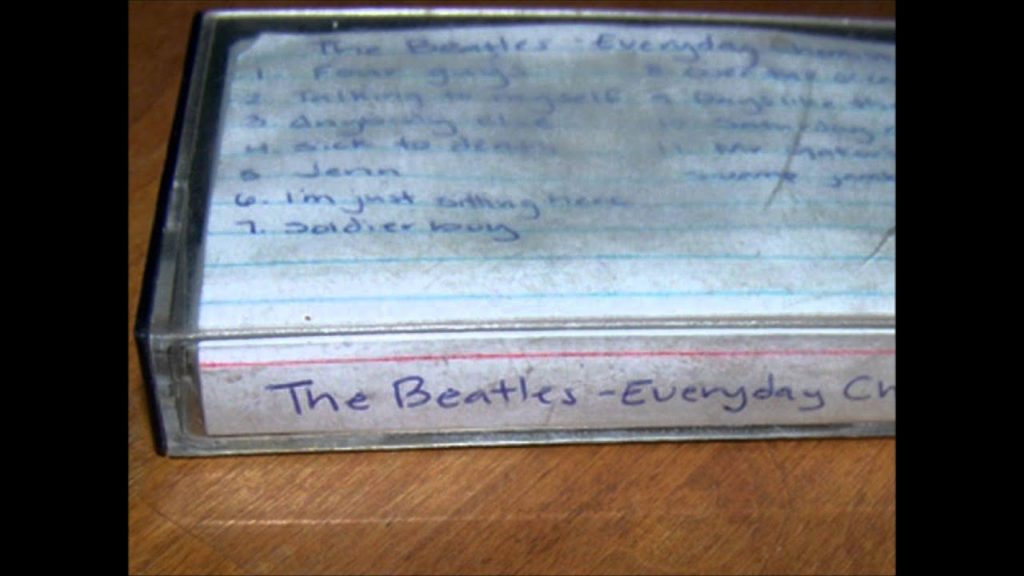 The Beatles - Everyday Chem
1. Four guys 8. Over the
2. Talking to myself 9. Days like th
3. Anybody else Saturday n
4. Sick to death 11. Mr
5. Jenn
6. I'm just sitting here
7. Soldier boy
The Beatles - Everyday Ch